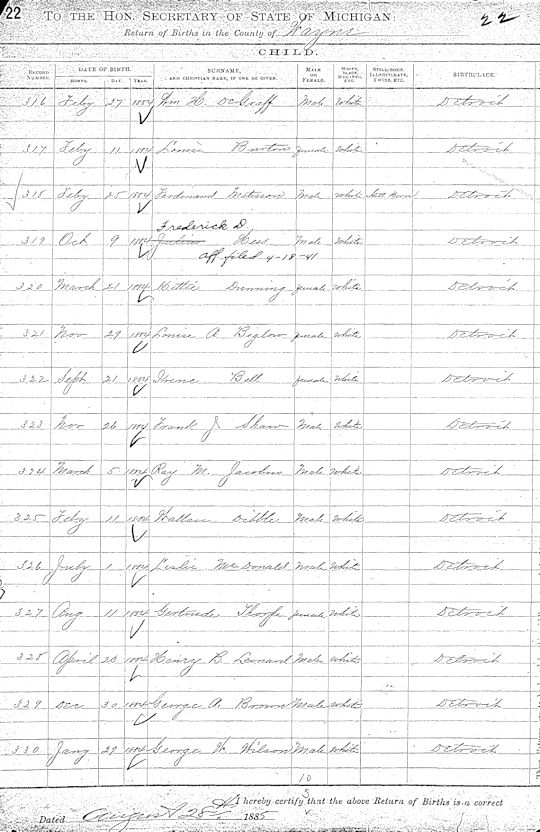 22
22
To the Hon. Secretary of State of Michigan:
Return of Births in the County of Wayne
CHILD.
RECORD NUMBER. DATE OF BIRTH. MONTH. DAY. YEAR. SURNAME, AND CHRISTIAN NAME, IF ONE BE GIVEN. MALE OR FEMALE. WHITE, BLACK, MULATTO, ETC. STILL-BORN, ILLEGITIMATE, TWINS, ETC. BIRTHPLACE.
316 Feby 27 1884 Wm H. DeGraff Male White Detroit
317 Feby 11 1884 Louise Burton female White Detroit
318 Feby 25 1884 Ferdinand Male White Still Born Detroit
Frederick D.
319 Oct 9 1884 Julius Hess Male White Detroit
Aff. filed 4-18-41
320 March 21 1884 Hattie Dunning female White Detroit
321 Nov 29 1884 Louise A Biglow female White Detroit
322 Sept 21 1884 Irene Bell female White Detroit
323 Nov 26 1884 Frank J Shaw Male White Detroit
324 March 5 1884 Ray M. Jacobus Male White Detroit
325 Feby 11 1884 Wallace Dibble Male White Detroit
326 July 1 1884 Leslie McDonald Male White Detroit
327 Aug 11 1884 Gertrude Thorpe female White Detroit
328 April 23 1884 Henry B Leonard Male White Detroit
329 Dec 30 1884 George A. Brown Male White Detroit
330 Jany 29 1884 George W. Wilson Male White Detroit
10
5
I hereby certify that the above Return of Births is a correct
Dated August 28th 1885